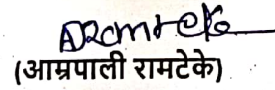 (आम्रपाली रामटेके)